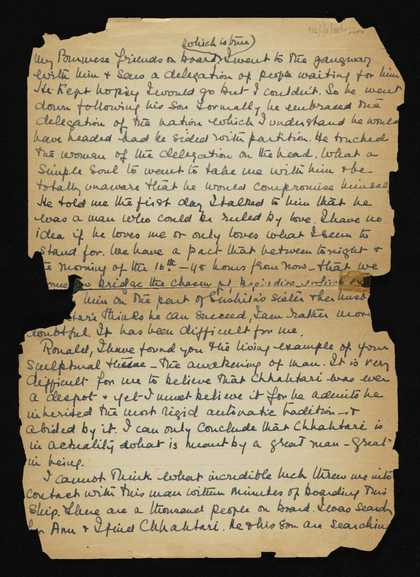 (which is true)
My Burmese friends on board. I went to the gangway
with him & saw a delegation of people waiting for him
He kept hoping I would go but I couldn't. So he went
down following his son. Formally he embraced the
delegation of the nation which I understand he would
have headed had he sided with partition. He touched
the women of the delegation on the head. What a
simple soul to want to take me with him & be
totally unaware that he would compromise himself
He told me the first day I talked to him that he
was a man who could be ruled by love. I have no
idea if he loves me or only loves what I seem to
stand for. We have a pact that between tonight &
the morning of the 16th – 48 hours from now – that we
bridge the chasm
him on the part of Sushila's sister & her
thinks he can succeed, I am rather more
doubtful. It has been difficult for me.
Ronald, I have found you the living example of your
sculptural – the awakening of man. It is very
difficult for me to believe that Chhahtari was ever
a despot & yet I must believe it for he admits he
inherited the most rigid autocratic tradition – &
abided by it. I can only conclude that Chhahtari is
in actuality what is meant by a great man – great
in being.
I cannot think what incredible luck threw me into
contact with this man within minutes of boarding this
ship. There are a thousand people on board. I was search
for Ann & I find Chhahtari. He & his son are searching